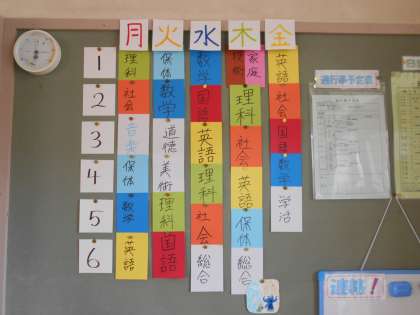 月 火 水 木 金
1 理科 保体 数学 技術 家庭 英語
2 社会 数学 国語 理科 社会
3 音楽 道徳 英語 社会 国語
4 保体 美術 理科 英語 数学
5 数学 理科 社会 保体 学活
6 英語 国語 総合 総合
進行事予定表
連絡!